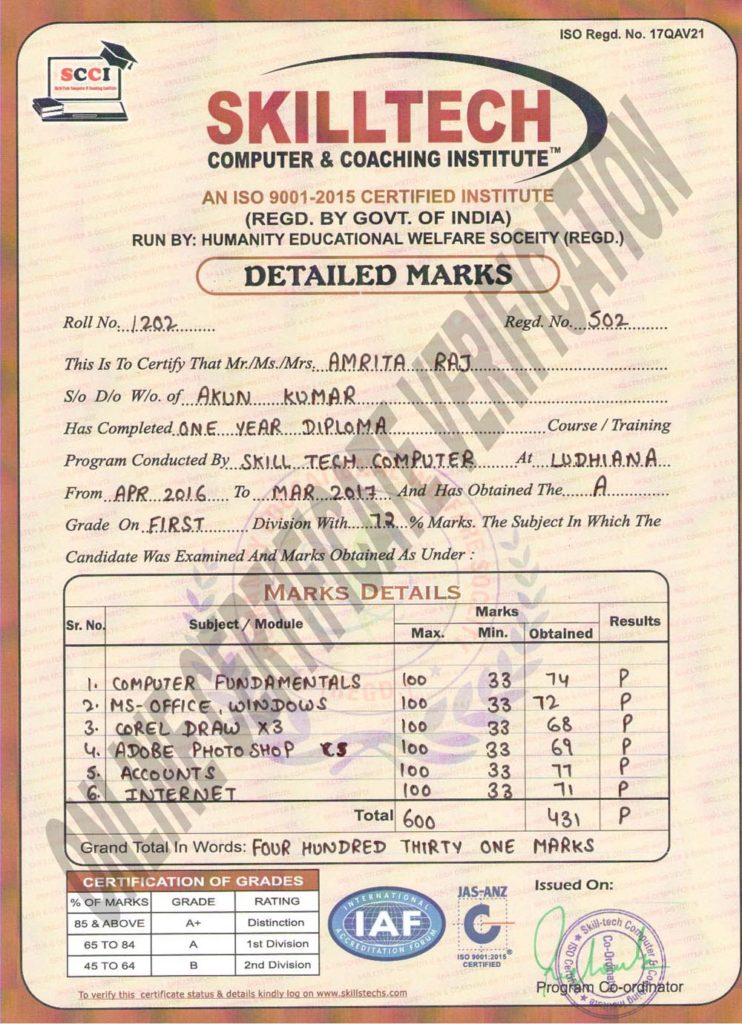 ISO Regd. No. 17QAV21
SCCI
Skill-Tech Computer & Coaching Institute
SKILLTECH
COMPUTER & COACHING INSTITUTE™
AN ISO 9001-2015 CERTIFIED INSTITUTE
(REGD. BY GOVT. OF INDIA)
RUN BY: HUMANITY EDUCATIONAL WELFARE SOCEITY (REGD.)
DETAILED MARKS
Roll No. 1202 Regd. No. 502
This Is To Certify That Mr./Ms./Mrs. AMRITA RAJ
S/o D/o W/o. of AKUN KUMAR
Has Completed ONE YEAR DIPLOMA Course / Training
Program Conducted By SKILL TECH COMPUTER At LUDHIANA
From APR 2016 To MAR 2017 And Has Obtained The A
Grade On FIRST Division With 72 % Marks. The Subject In Which The
Candidate Was Examined And Marks Obtained As Under :
MARKS DETAILS
Sr. No. Subject / Module Marks Results
Max. Min. Obtained
1. COMPUTER FUNDAMENTALS 100 33 74 P
2. MS-OFFICE, WINDOWS 100 33 72 P
3. COREL DRAW X3 100 33 68 P
4. ADOBE PHOTOSHOP CS 100 33 69 P
5. ACCOUNTS 100 33 77 P
6. INTERNET 100 33 71 P
Total 600 431 P
Grand Total In Words: FOUR HUNDRED THIRTY ONE MARKS
CERTIFICATION OF GRADES
% OF MARKS GRADE RATING
85 & ABOVE A+ Distinction
65 TO 84 A 1st Division
45 TO 64 B 2nd Division
INTERNATIONAL
IAF
ACCREDITATION FORUM
JAS-ANZ
C
ISO 9001:2015
CERTIFIED
®
Issued On:
Skill-tech Computer & Coaching Institute
Co-Ordinator
Program Co-ordinator
To verify this certificate status & details kindly log on www.skillstechs.com
ONLINE CERTIFICATE VERIFICATION